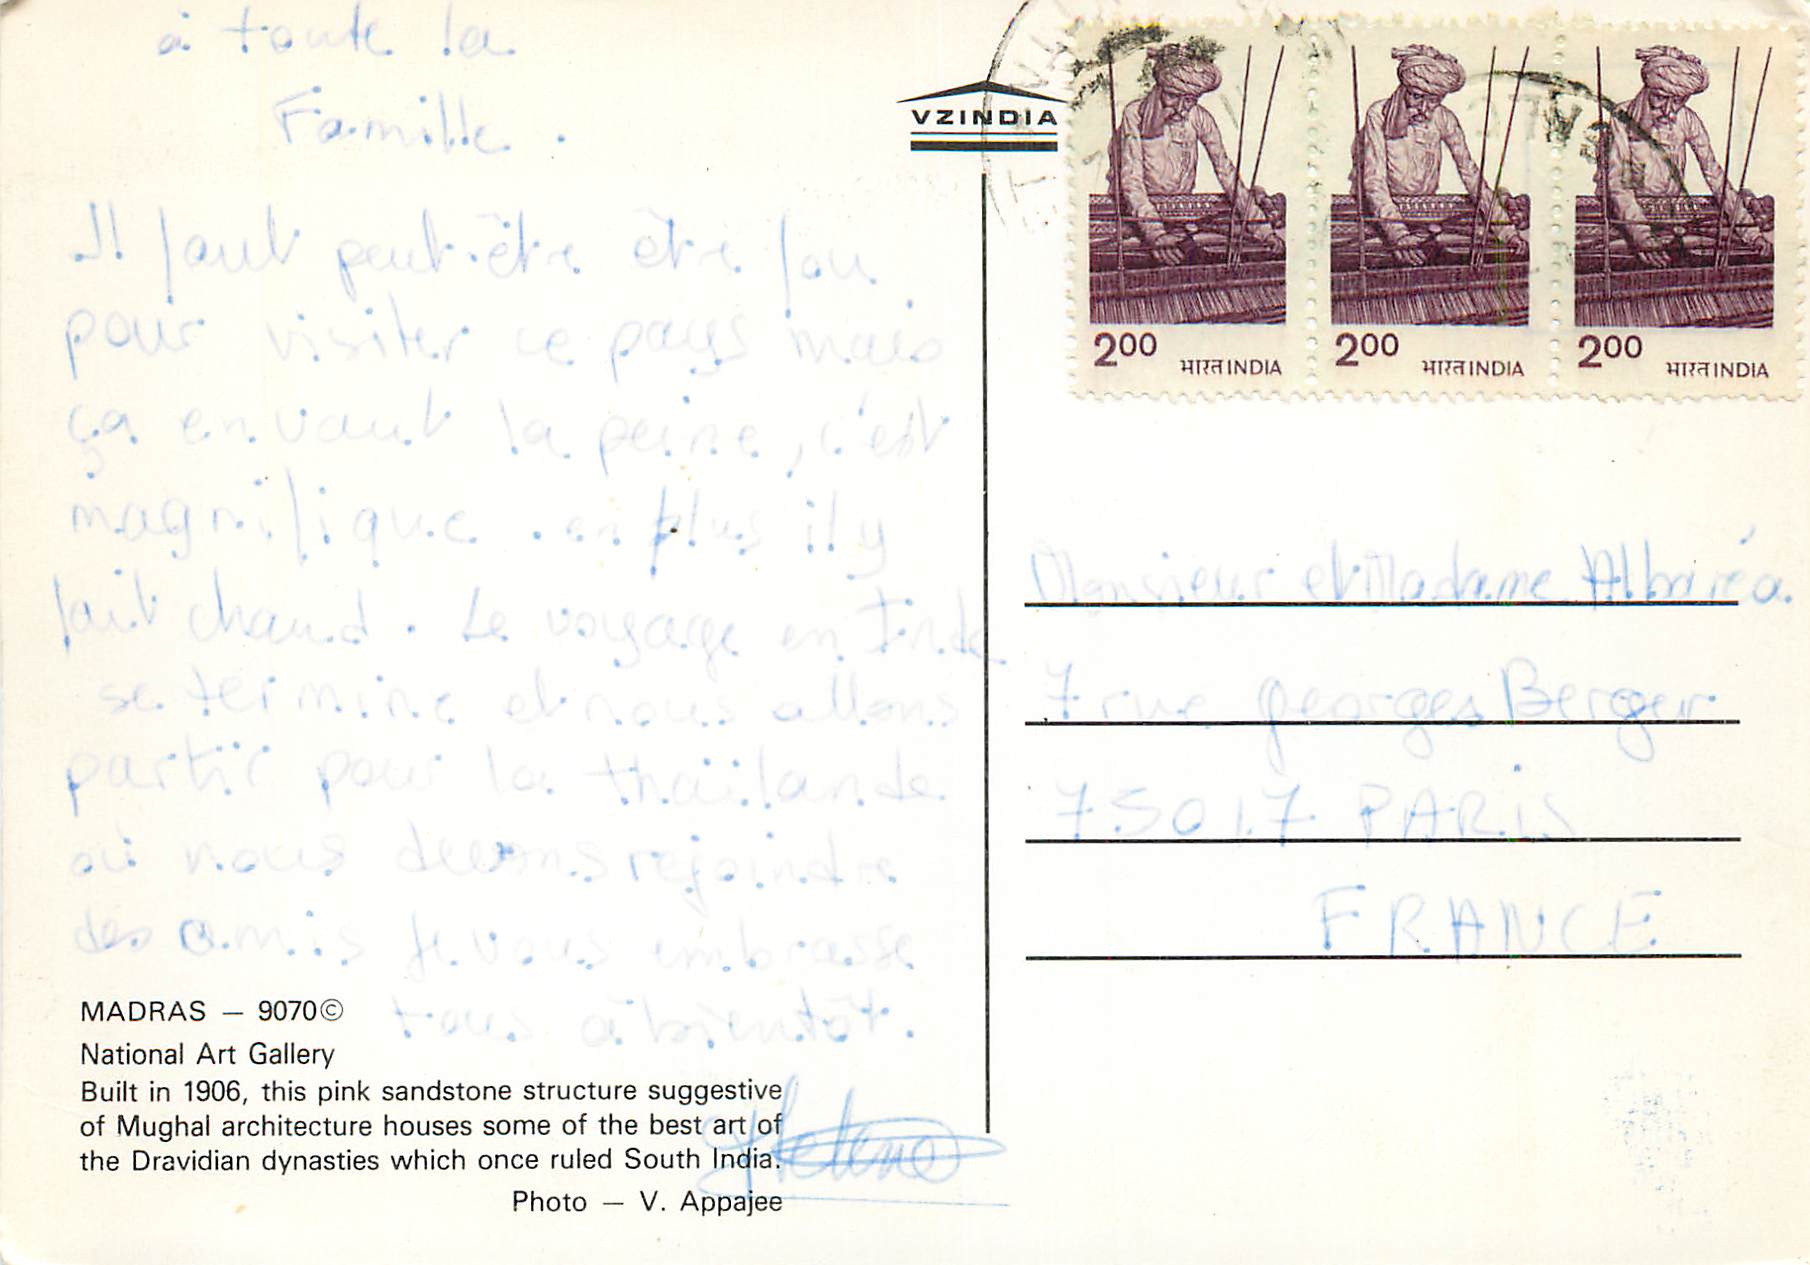 à toute la
Famille.
Il faut peut-être être fou
pour visiter ce pays mais
ça en vaut la peine, c'est
magnifique. en plus il y
fait chaud. Le voyage en Inde
se termine et nous allons
partir pour la thaïlande
où nous devons rejoindre
des amis Je vous embrasse
tous à bientôt.
Helene
MADRAS — 9070©
National Art Gallery
Built in 1906, this pink sandstone structure suggestive
of Mughal architecture houses some of the best art of
the Dravidian dynasties which once ruled South India.
Photo — V. Appajee
VZINDIA
200 भारत INDIA
200 भारत INDIA
200 भारत INDIA
Monsieur et Madame Albaréa
7 rue georges Berger
75017 PARIS
FRANCE